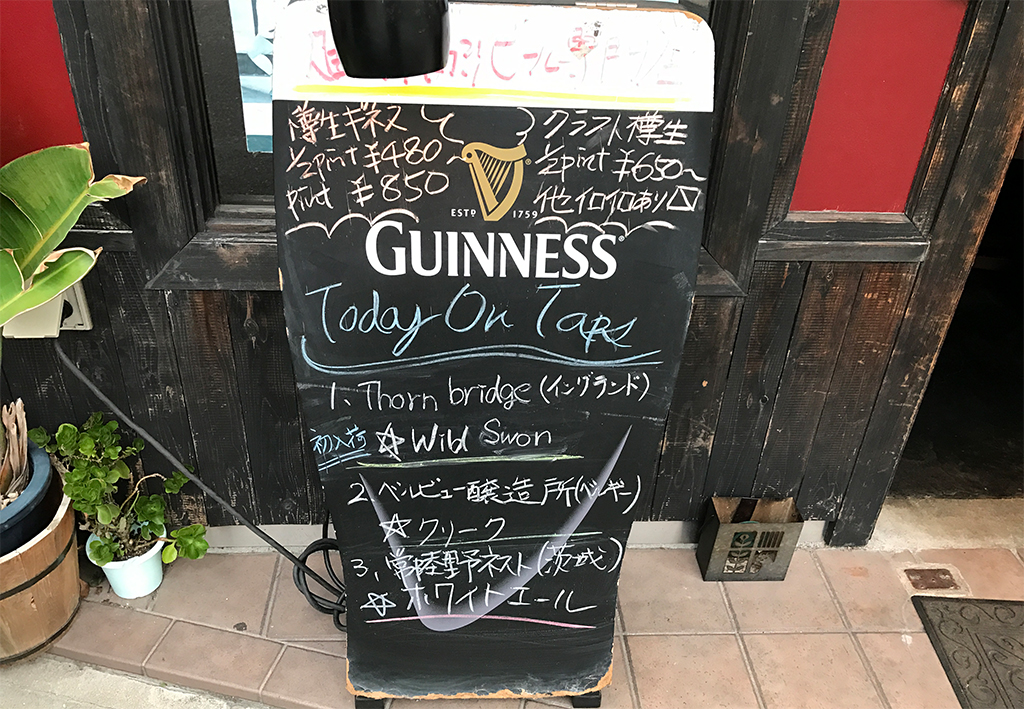 ビール専門店
樽生ギネス
1/2pint ¥480~
pint ¥850
クラフト樽生
1/2pint ¥650~
他イロイロあり
ESTD 1759
GUINNESS
Today On Taps
1、Thorn bridge (イングランド)
初入荷 ☆Wild Swon
2、ベルビュー醸造所(ベルギー)
☆クリーク
3、常陸野ネスト(茨城)
☆ホワイトエール